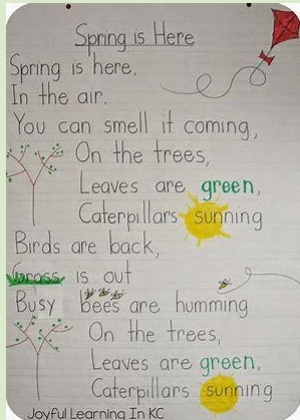 Spring is Here
Spring is here.
In the air.
You can smell it coming,
On the trees,
Leaves are green,
Caterpillars sunning
Birds are back,
Grass is out
Busy bees are humming
On the trees,
Leaves are green,
Caterpillars sunning
Joyful Learning In KC